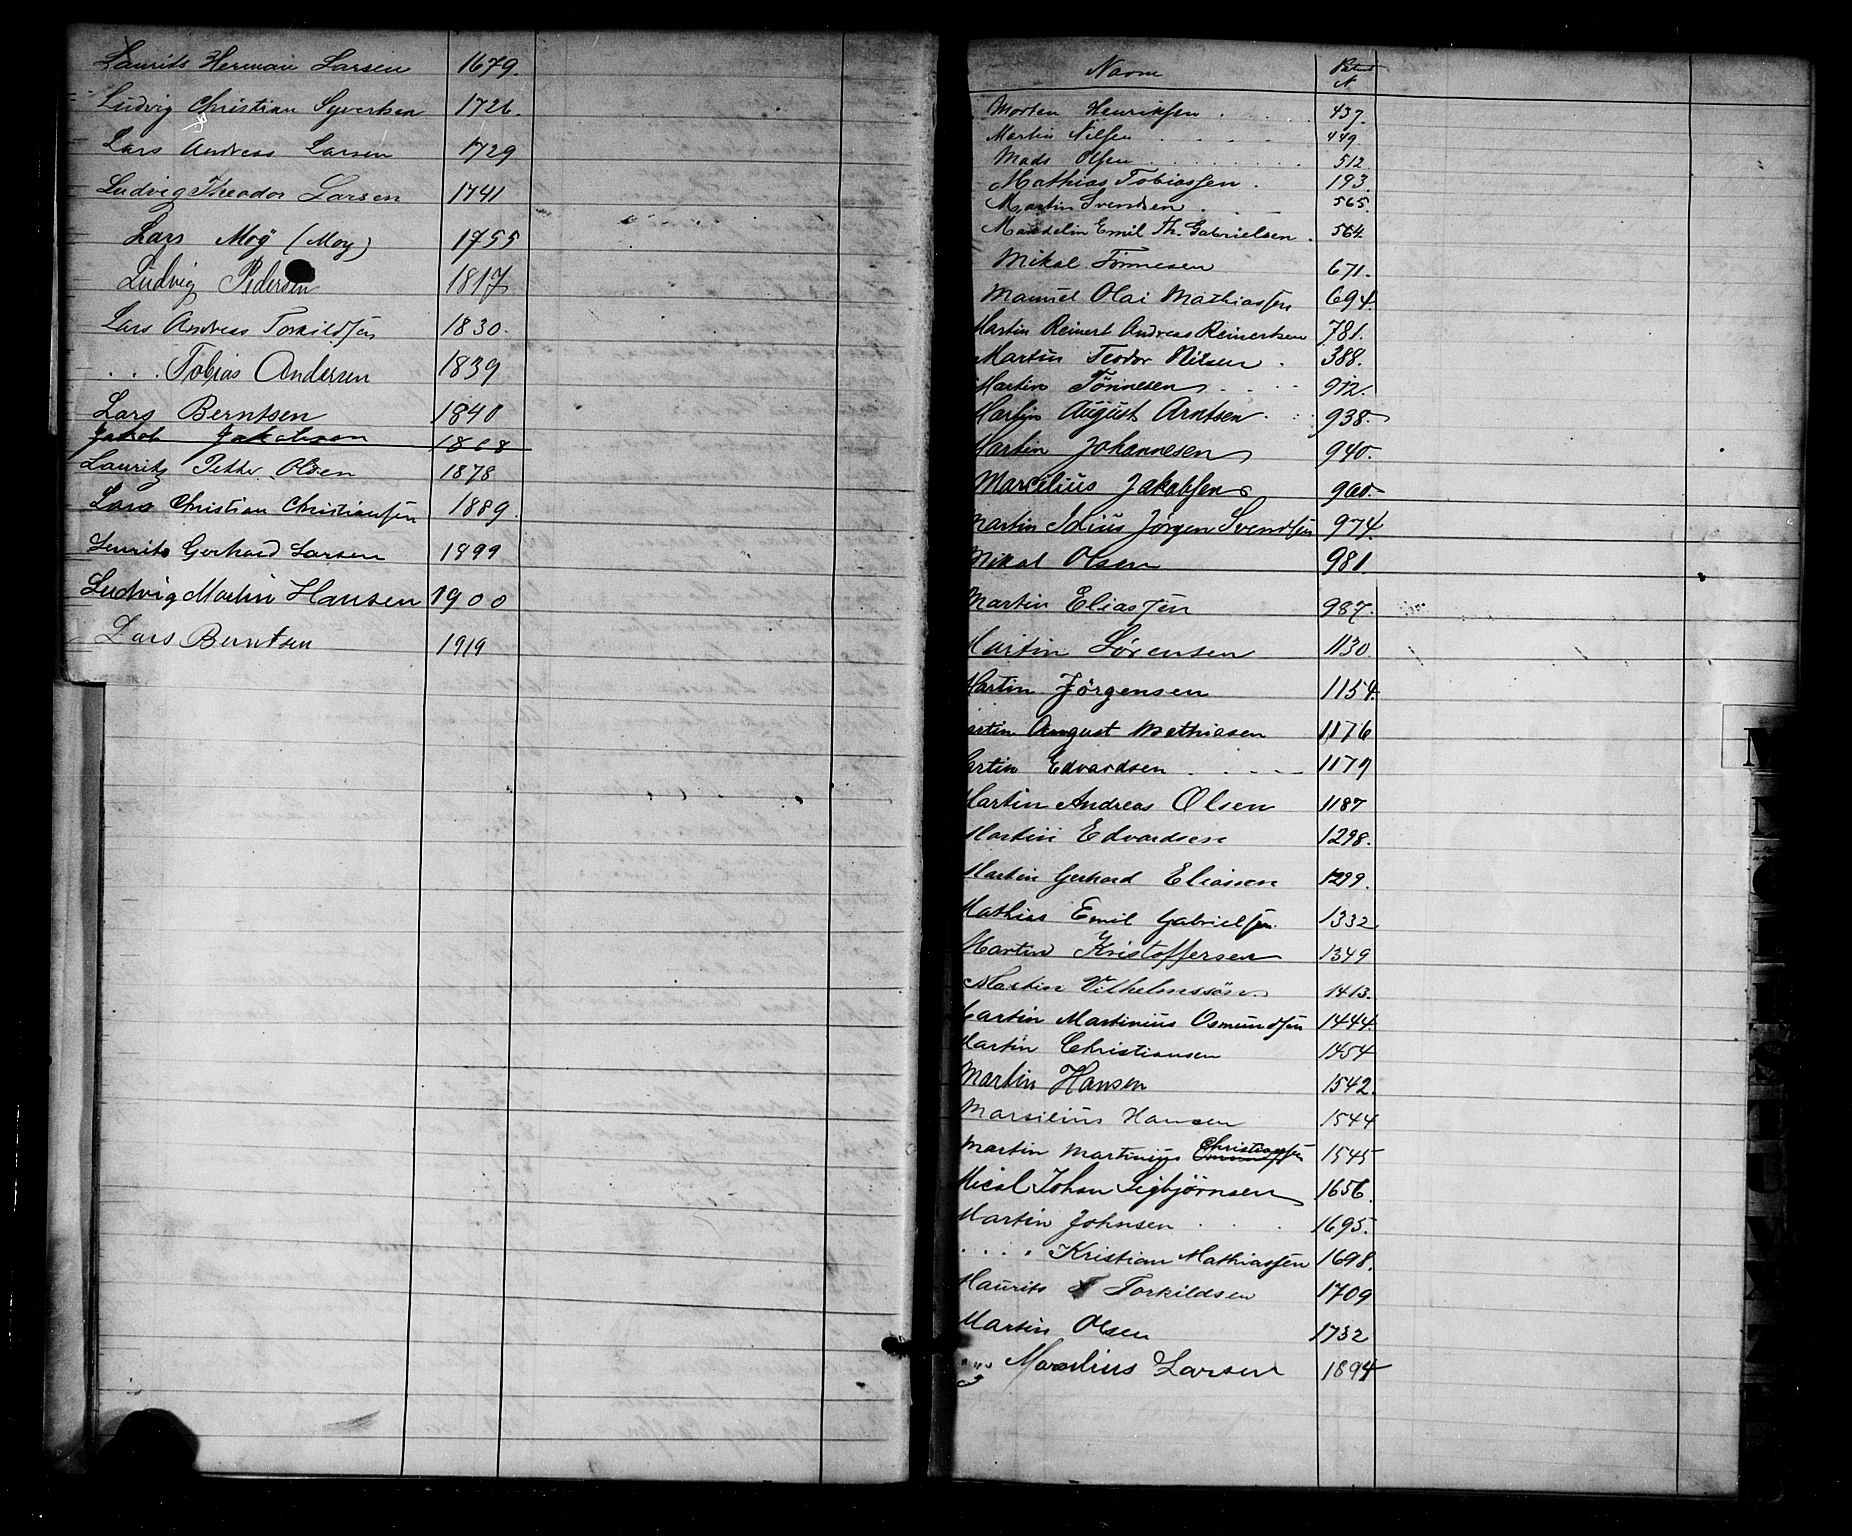 Laurits Herman Larsen 1679.
Ludvig Christian Syvertsen 1726.
Lars Andreas Larsen 1729
Ludvig Theodor Larsen 1741
Lars Moÿ (Moy) 1755
Ludvig Pedersen 1817
Lars Andreas Torkildsen 1830.
. . . Tobias Andersen 1839
Lars Berntsen 1840
Jakob Jakobsen 1868
Lauritz Petter Olsen 1878
Lars Christian Christiansen 1889.
Laurits Gerhard Larsen 1899
Ludvig Martin Hansen 1900
Lars Berntsen 1919
Navn
Morten Henriksen . . . . 437.
Martin Nilsen . . . 449.
Mads Olsen . . . . . . 512.
Mathias Tobiassen . 193.
Martin Svendsen . . . 565.
Mandelin Emil Th. Gabrielsen . 564.
Mikal Tönnesen 671.
Manuel Olai Mathiassen 694.
Martin Reinert Andreas Reinertsen 781.
Martin Teodor Nilsen . 388.
Martin Tönnesen . . . 912.
Martin August Arntsen . . 938.
Martin Johannesen 940.
Marcelius Jakobsen 960.
Martin Julius Jörgen Svendsen 974.
Mikal Olsen 981.
Martin Eliassen 987.
Martin Sörensen 1130.
Martin Jörgensen 1154.
Martin August Mathiasen 1176
Martin Edvardsen . . . . 1179
Martin Andreas Olsen 1187
Martin Edvardsen 1298.
Martin Gerhard Eliassen 1299.
Mathias Emil Gabrielsen. 1332
Martin Kristoffersen 1349
Martin Vilhelmssön. 1413.
Martin Martinius Osmundsen 1444.
Martin Christiansen 1454
Martin Hansen 1542.
Marsilius Hansen 1544
Martin Martinius Christiansen 1545
Mical Johan Sigbjörnsen 1656.
Martin Johnsen . . . 1695.
. . . . Kristian Mathiassen 1698.
Maurits Torkildsen 1709
Martin Olsen 1732
" " Marselius Larsen 1894